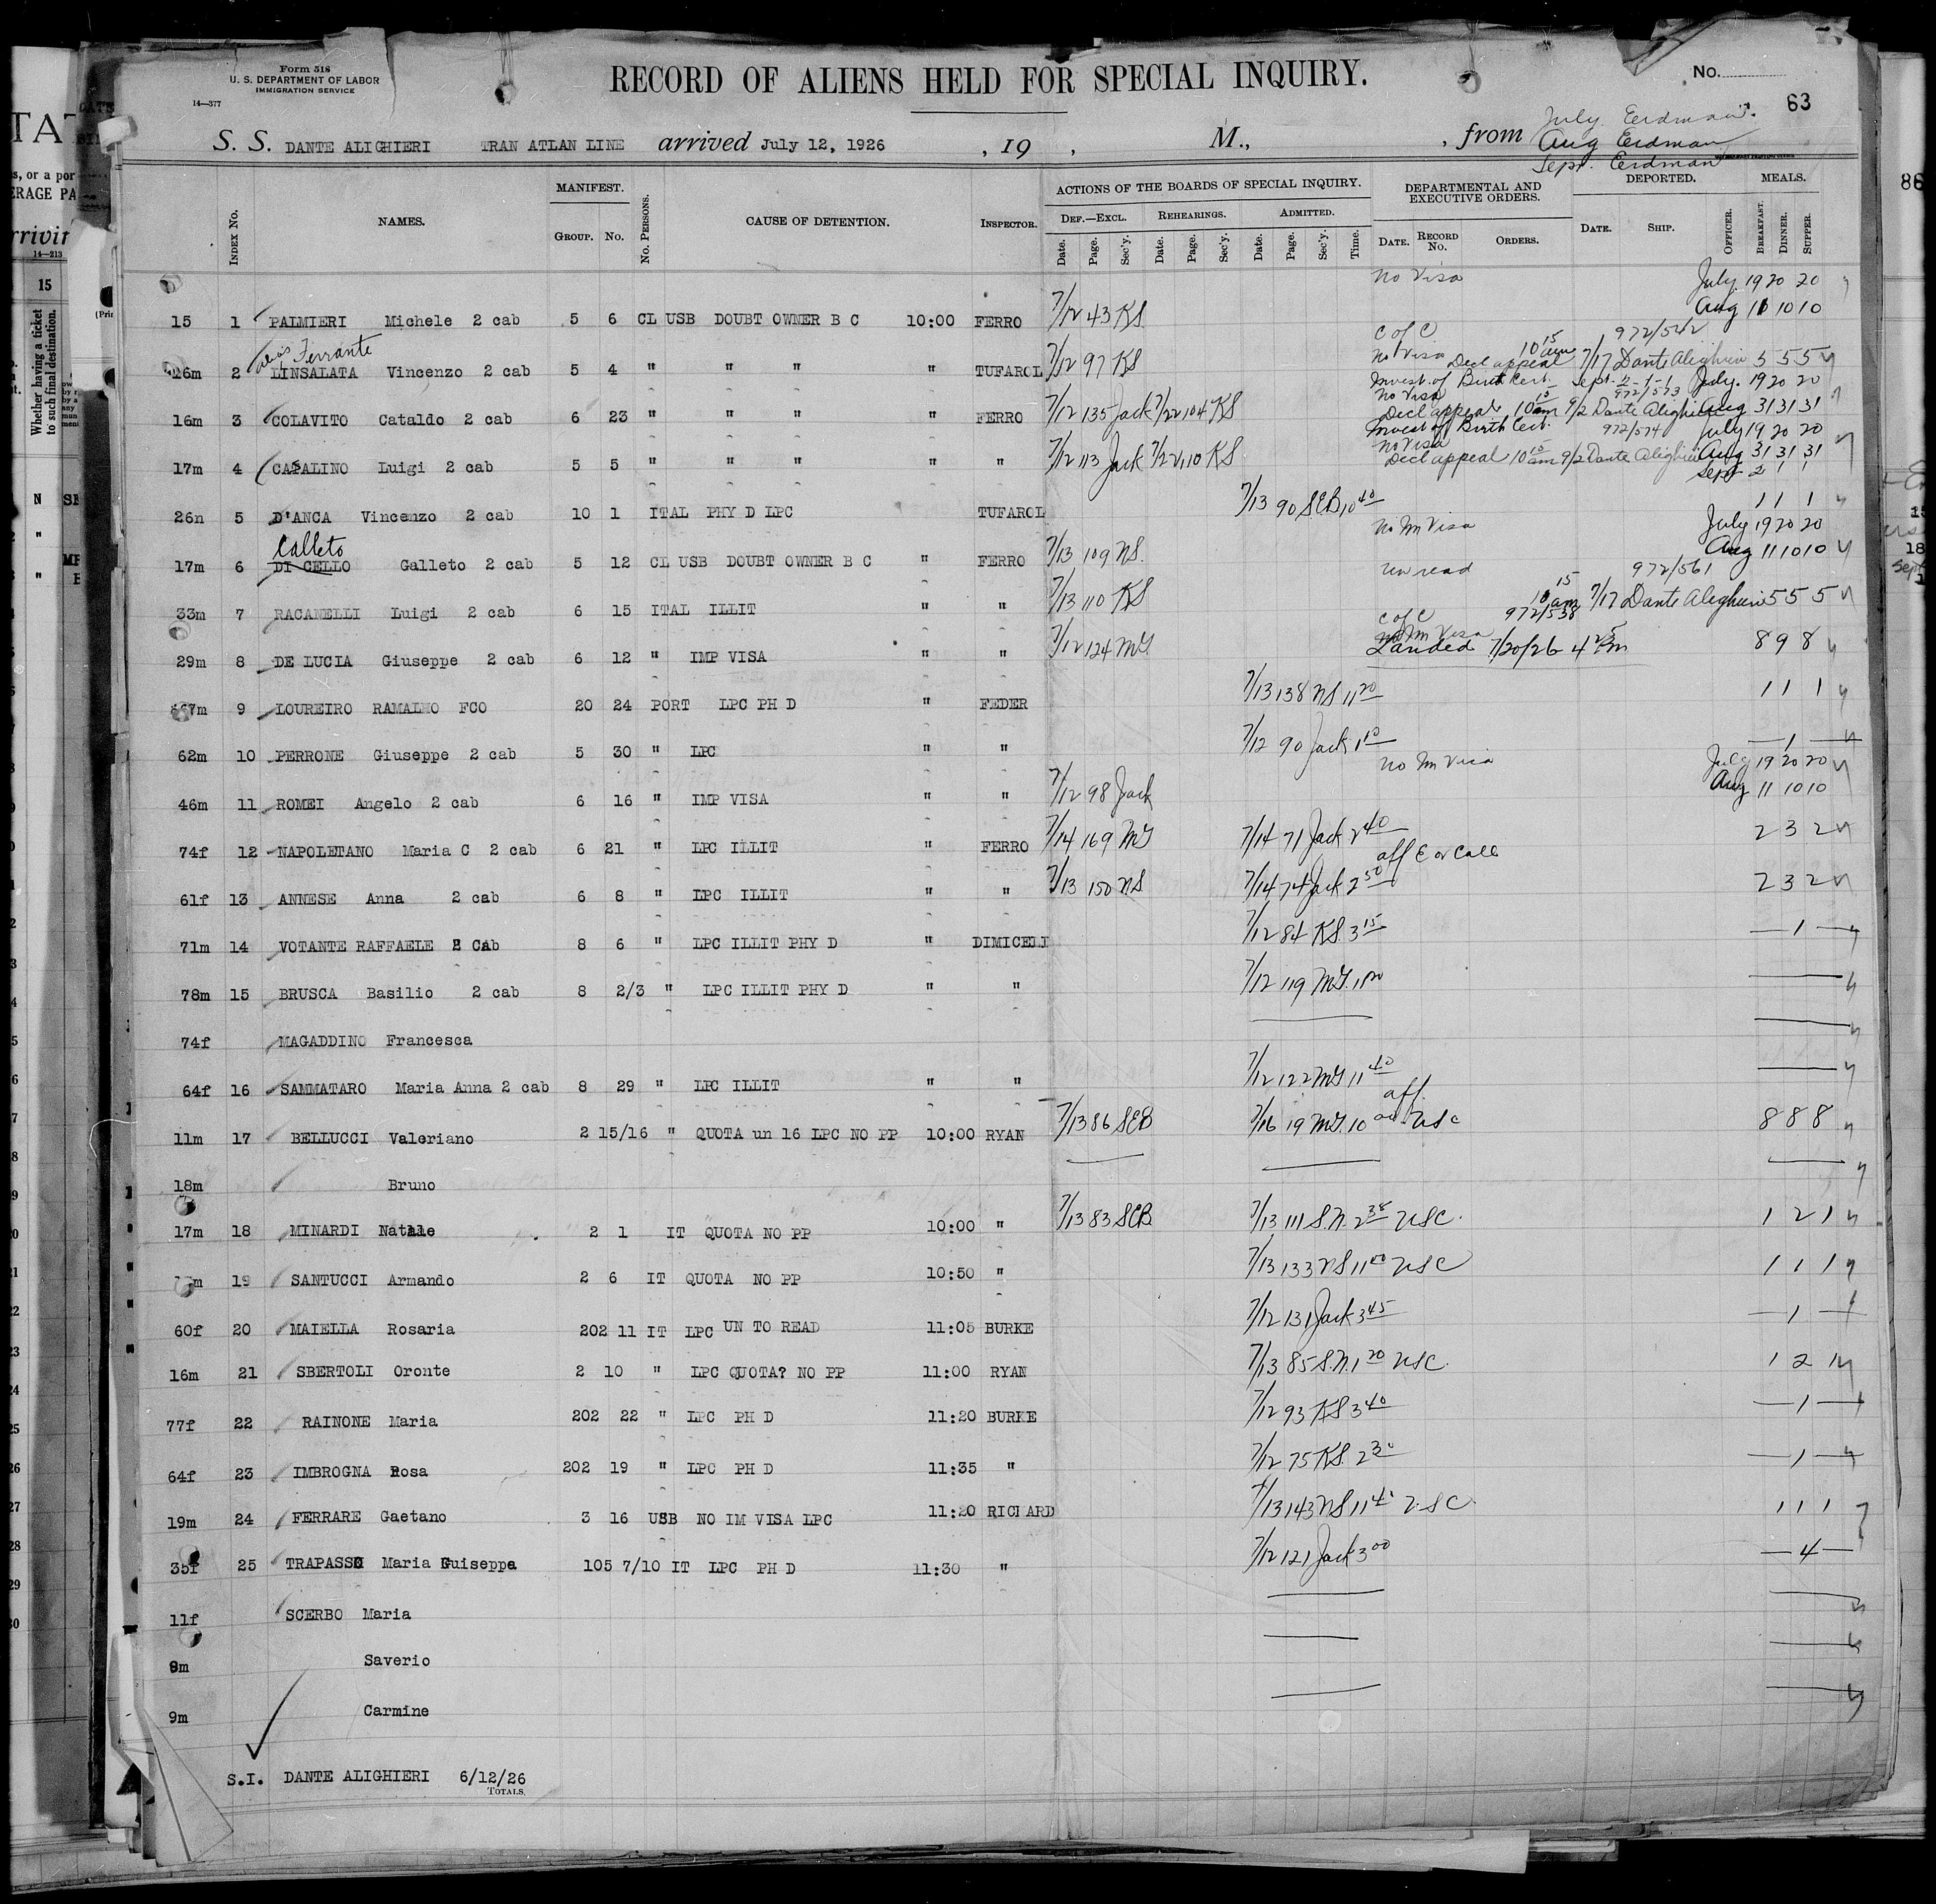 Form 518
U. S. DEPARTMENT OF LABOR
IMMIGRATION SERVICE
14—377
RECORD OF ALIENS HELD FOR SPECIAL INQUIRY.
No.
63
July Eerdman.
S. S. DANTE ALIGHIERI TRAN ATLAN LINE arrived July 12, 1926 , 19 , M., , from Aug Eerdman
Sept. Eerdman
INDEX NO. NAMES. MANIFEST. GROUP. NO. NO. PERSONS. CAUSE OF DETENTION. INSPECTOR. ACTIONS OF THE BOARDS OF SPECIAL INQUIRY. DEF.—EXCL. REHEARINGS. ADMITTED. DEPARTMENTAL AND EXECUTIVE ORDERS. DEPORTED. MEALS.
Date. Page. Sec'y. Date. Page. Sec'y. Date. Page. Sec'y. Time. DATE. RECORD NO. ORDERS. DATE. SHIP. OFFICER. BREAKFAST. DINNER. SUPPER.
No Visa July 19 20 20
Aug 11 10 10
15 1 PALMIERI Michele 2 cab 5 6 CL USB DOUBT OWNER B C 10:00 FERRO 7/12 43 KS
alias Ferrante
C of C 972/542
No Visa 10 15 am 7/17 Dante Alighieri 5 5 5
26m 2 LINSALATA Vincenzo 2 cab 5 4 " " " " TUFAROL 7/12 97 KS
Decl appeal
Invest. of Birth Cert. Sept. 2-1-1 July. 19 20 20
No Visa 972/573
Decl appeal 10 15 am 9/2 Dante Alighieri Aug 31 31 31
16m 3 COLAVITO Cataldo 2 cab 6 23 " " " " FERRO 7/12 135 Jack 7/22 104 KS
Invest of Birth Cert. 972/574 July 19 20 20
No Visa
Decl appeal 10 15 am 9/2 Dante Alighieri Aug 31 31 31
Sept 2 1 1
17m 4 CASALINO Luigi 2 cab 5 5 " " " " " 7/12 113 Jack 7/22 110 KS
26n 5 D'ANCA Vincenzo 2 cab 10 1 ITAL PHY D LPC TUFAROL 7/13 90 SEB 10 40 1 1 1
Calleto
No Im Visa July 19 20 20
Aug 11 10 10
17m 6 DI CELLO Galleto 2 cab 5 12 CL USB DOUBT OWNER B C " FERRO 7/13 109 NS.
un read 972/561
33m 7 RACANELLI Luigi 2 cab 6 15 ITAL ILLIT " " 7/13 110 KS 10 15 am 7/17 Dante Alighieri 5 5 5
C of C 972/538
No Im Visa
29m 8 DE LUCIA Giuseppe 2 cab 6 12 " IMP VISA " " 7/12 124 MY Landed 7/20/26 4 25 Pm 8 9 8
67m 9 LOUREIRO RAMALHO FCO 20 24 PORT LPC PH D " FEDER 7/13 138 NS 11 20 1 1 1
62m 10 PERRONE Giuseppe 2 cab 5 30 " LPC " " 7/12 90 Jack 1 10 — 1 —
No Im Visa July 19 20 20
Aug 11 10 10
46m 11 ROMEI Angelo 2 cab 6 16 " IMP VISA " " 7/12 98 Jack
74f 12 NAPOLETANO Maria C 2 cab 6 21 " LPC ILLIT " FERRO 7/14 169 MY 7/14 71 Jack 2 40 2 3 2
61f 13 ANNESE Anna 2 cab 6 8 " LPC ILLIT " " 7/13 150 NS 7/14 74 Jack 2 50 2 3 2
71m 14 VOTANTE RAFFAELE 2 CAb 8 6 " LPC ILLIT PHY D " DIMICELI 7/12 84 KS. 3 15 — 1 —
78m 15 BRUSCA Basilio 2 cab 8 2/3 " LPC ILLIT PHY D " " 7/12 119 MY.
74f MAGADDINO Francesca
64f 16 SAMMATARO Maria Anna 2 cab 8 29 " LPC ILLIT " " 7/12 122 MY 11 40
aff.
11m 17 BELLUCCI Valeriano 2 15/16 " QUOTA un 16 LPC NO PP 10:00 RYAN 7/13 86 SEB 7/16 19 MY. 10 00 USC 8 8 8
18m Bruno
17m 18 MINARDI Natale 2 1 IT QUOTA NO PP 10:00 " 7/13 83 SEB 7/13 111 S.N. 2 35 USC. 1 2 1
19 SANTUCCI Armando 2 6 IT QUOTA NO PP 10:50 " 7/13 133 NS 11 00 USC 1 1 1
60f 20 MAIELLA Rosaria 202 11 IT LPC UN TO READ 11:05 BURKE 7/12 131 Jack 3 45 — 1 —
16m 21 SBERTOLI Oronte 2 10 " LPC QUOTA? NO PP 11:00 RYAN 7/13 85 S.N. 1 20 USC. 1 2 1
77f 22 RAINONE Maria 202 22 " LPC PH D 11:20 BURKE 7/12 93 KS 3 40 — 1 —
64f 23 IMBROGNA Rosa 202 19 " LPC PH D 11:35 " 7/12 75 KS. 2 30 — 1 —
19m 24 FERRARE Gaetano 3 16 USB NO IM VISA LPC 11:20 RICHARD 7/13 143 NS 11 41 USC. 1 1 1
35f 25 TRAPASSO Maria Guiseppa 105 7/10 IT LPC PH D 11:30 " 7/12 121 Jack 3 00 — 4 —
11f SCERBO Maria
8m Saverio
9m Carmine
S.I. DANTE ALIGHIERI 6/12/26
TOTALS.